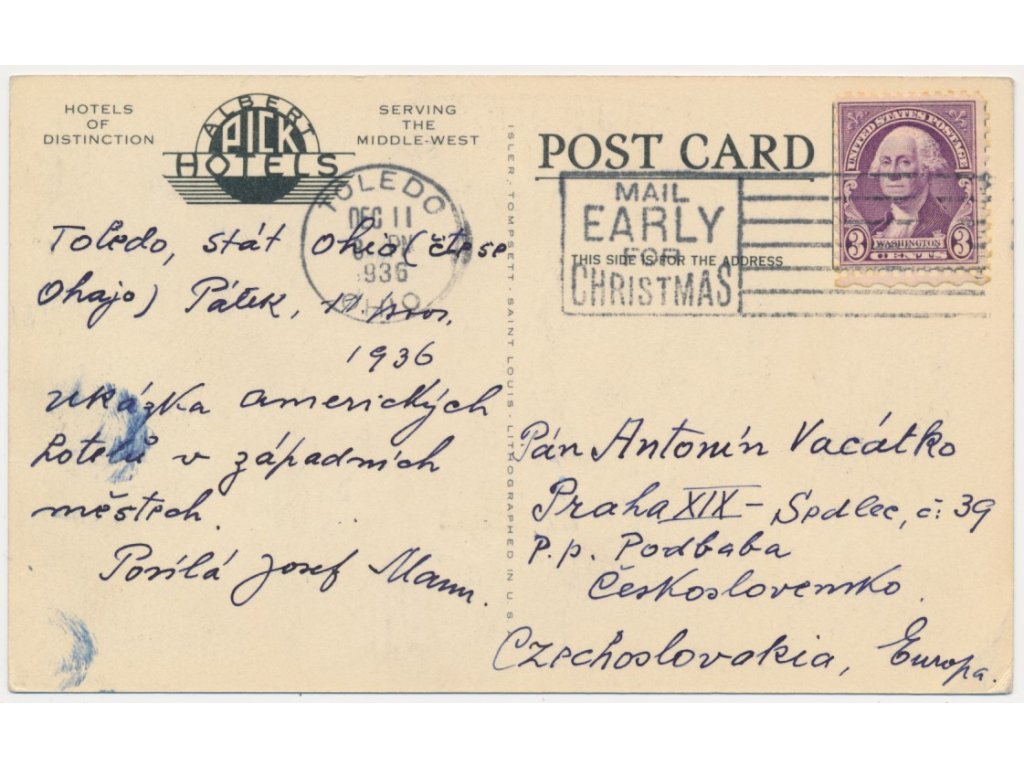 HOTELS
OF
DISTINCTION
ALBERT
PICK
HOTELS
SERVING
THE
MIDDLE-WEST
TOLEDO
DEC 11
PM
1936
OHIO
Toledo, stát Ohio (čte se
Ohajo) Pátek, 11. pros.
1936
Ukázka amerických
hotelů v západních
městech.
Posílá Josef Mann.
ISLER-TOMPSETT-SAINT LOUIS-LITHOGRAPHED IN U.S.
POST CARD
THIS SIDE IS FOR THE ADDRESS
MAIL
EARLY
FOR
CHRISTMAS
UNITED STATES POSTAGE
WASHINGTON
3 CENTS 3
Pán Antonín Vacátko
Praha XIX - Sedlec, č: 39
P.p. Podbaba
Československo.
Czechoslovakia, Europa.